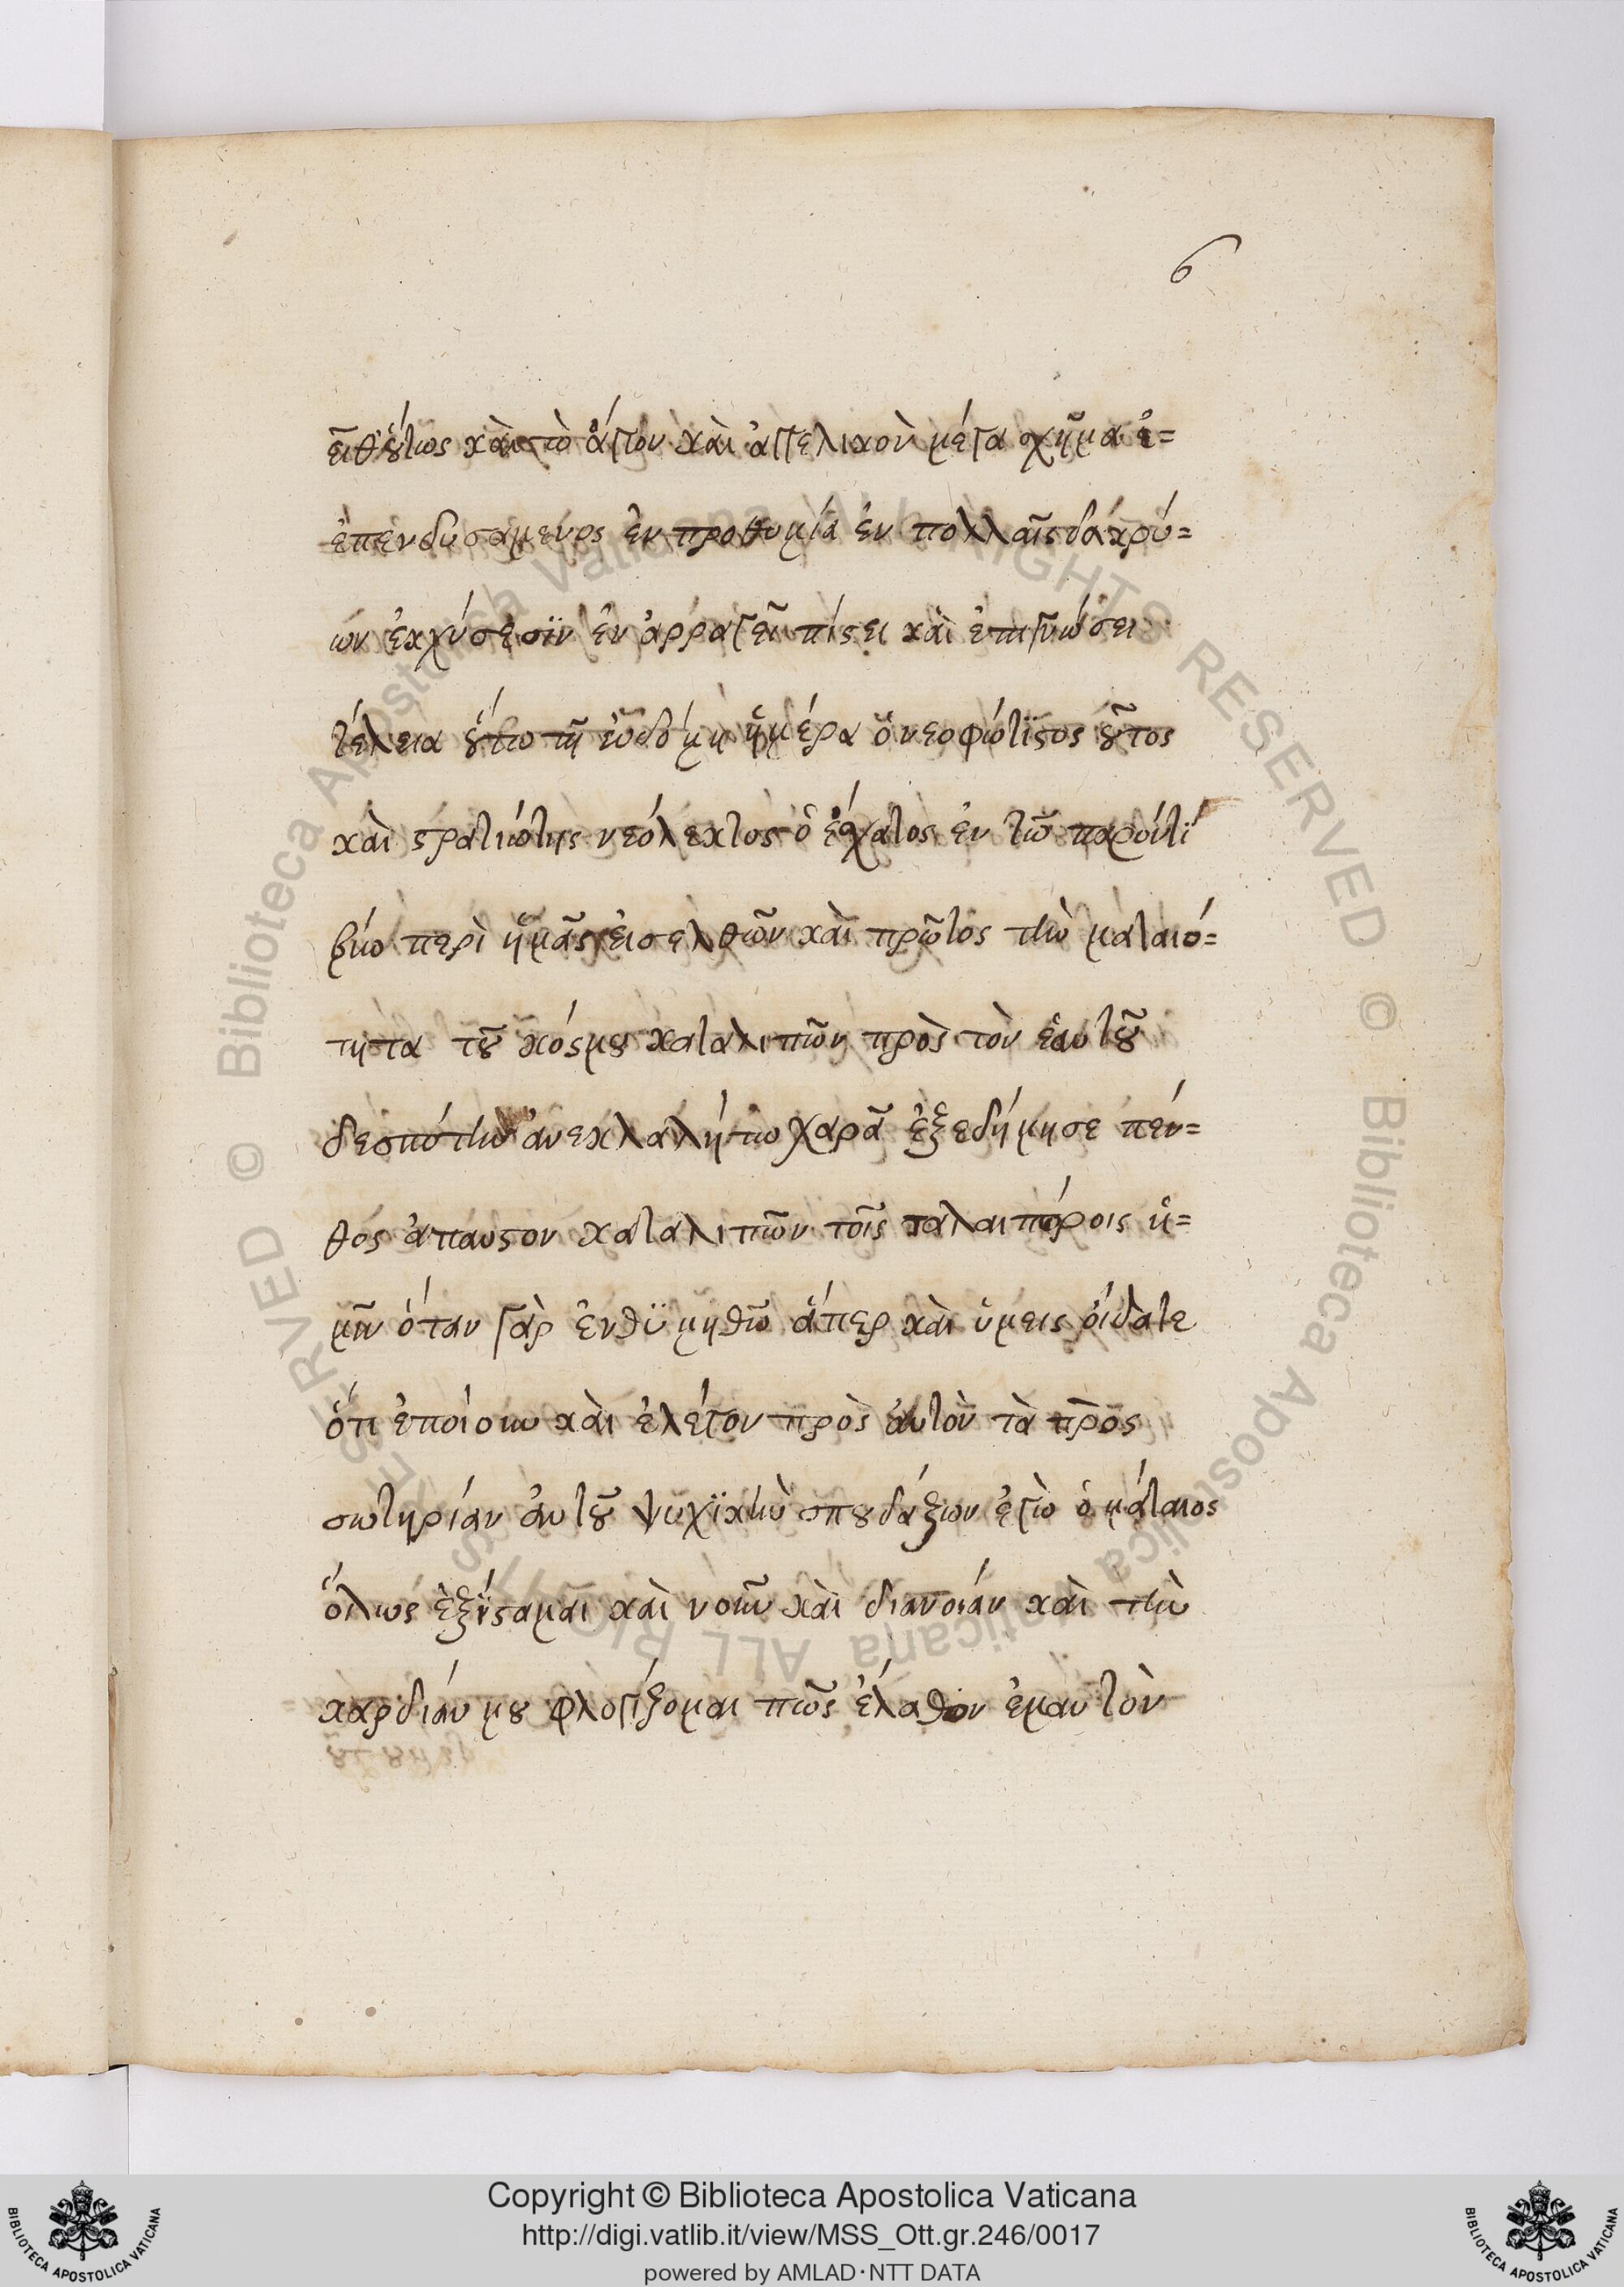 6
εἶθ' ὅυτως καὶ τὸ ἅγιον καὶ ἀγγελικὸν μέγα σχῆμα ἐ=
ἐπενδυσάμενος ἐν προθυμία ἐν πολλαῖς δακρύ=
ων ἐκχύσεσϊν ἐν ἀρραγεῖ πίστει καὶ ἐπιγνώσει
τέλεια ὅυτω τῆ ἡμέρα ὁ νεοφώτϊστος οὗτος
καὶ στρατιώτης νεόλεκτος ὁ ἔσχατος ἐν τῶ παρόντϊ
βίω περὶ ἡμᾶς εἰσελθῶν καὶ πρῶτος τὴν ματαιό=
τητα τοῦ κόσμου καταλιπῶν πρὸς τὸν ἑαυτοῦ
δεσπότην ἀνεκλαλήτω χαρᾶ ἐξεδήμησε πέν=
θος ἄπαυστον καταλιπῶν τοῖς ταλαιπόροις ἡ=
μῖν ὅταν γὰρ ἐνθϋμηθῶ ἅπερ καὶ ὑμεις οἴδατε
ὅτι ἐποίουν καὶ ἐλέγον πρὸς ἀυτὸν τὰ πρὸς
σωτηρίαν ἀυτοῦ ψυχϊκὴν σπουδάζων ἐγὼ ὁ μάταιος
ὅλως ἐξίσταμαι καὶ νοῦν καὶ διανοιάν καὶ τὴν
καρδιάν μου φλογίζομαι πῶς ἔλαθον ἐμαυτὸν
Copyright © Biblioteca Apostolica Vaticana
http://digi.vatlib.it/view/MSS_Ott.gr.246/0017
powered by AMLAD·NTT DATA
BIBLIOTECA APOSTOLICA VATICANA
BIBLIOTECA APOSTOLICA VATICANA
© Biblioteca Apostolica Vaticana ALL RIGHTS RESERVED © Biblioteca Apostolica Vaticana ALL RIGHTS RESERVED